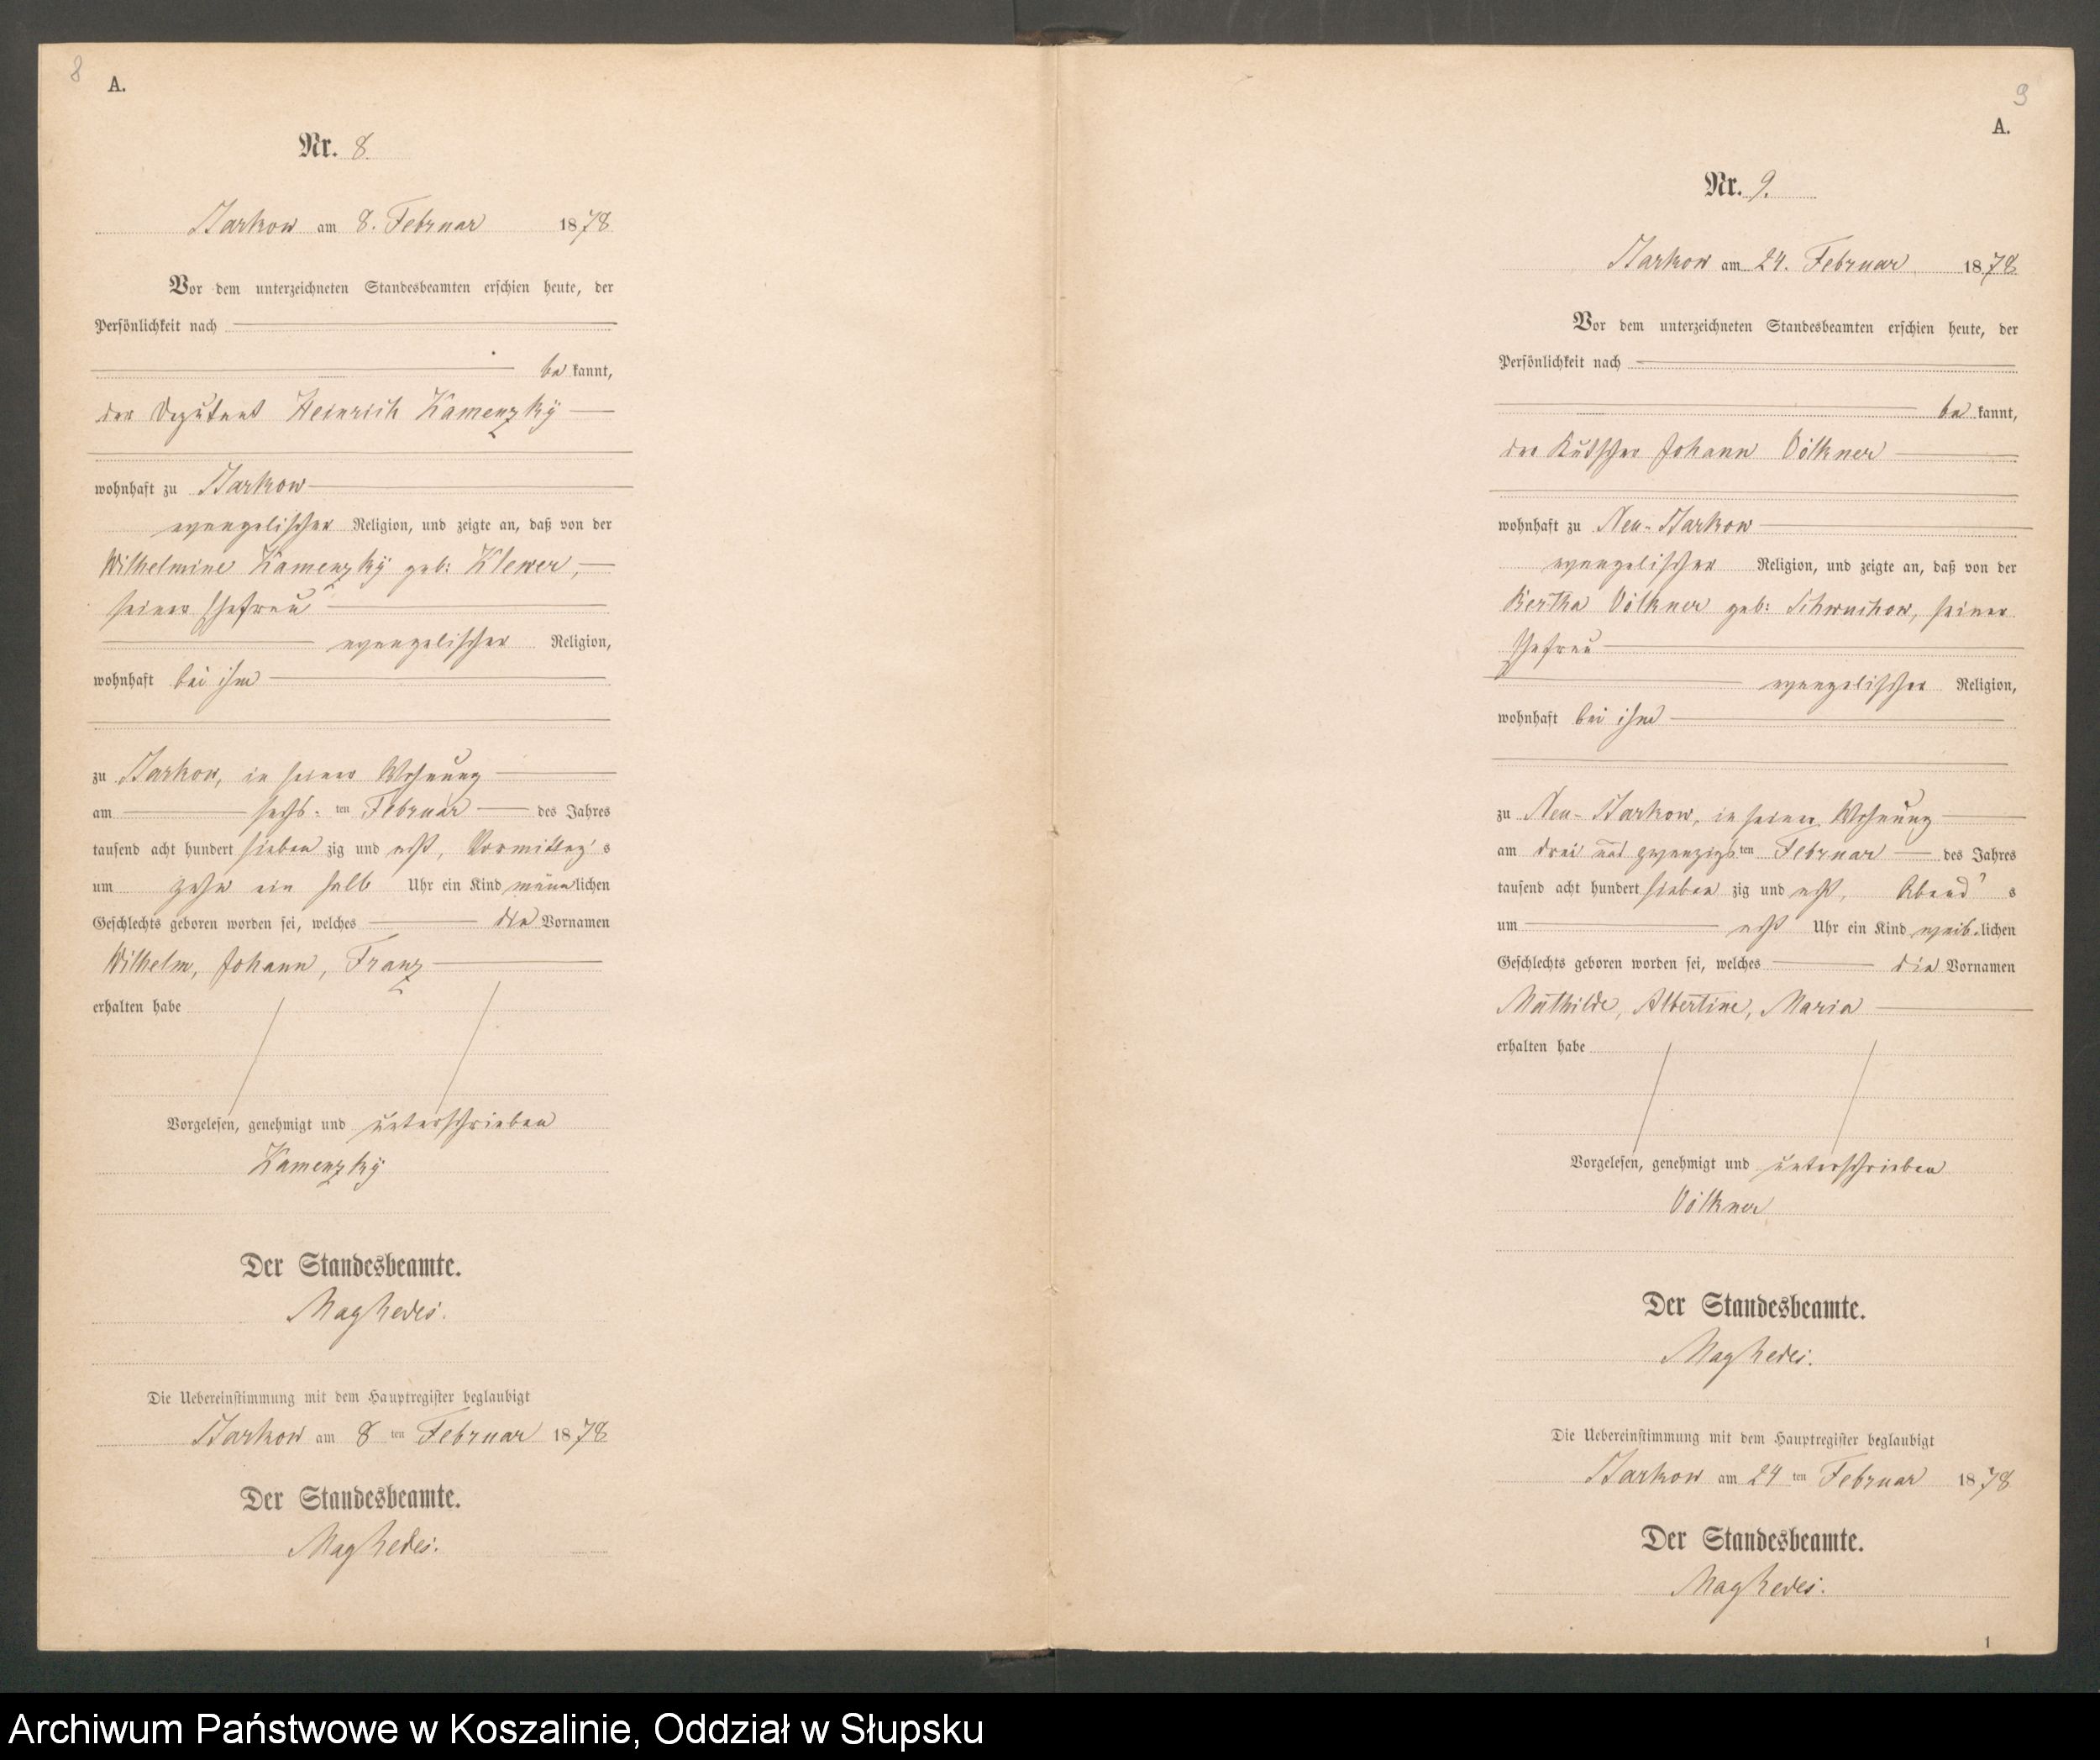 8
A.
Nr. 8.
Starkow am 8. Februar 1878
Vor dem unterzeichneten Standesbeamten erschien heute, der
Persönlichkeit nach
be kannt,
der Deputant Heinrich Kamenzky
wohnhaft zu Starkow
evangelischer Religion, und zeigte an, daß von der
Wilhelmine Kamenzky geb: Klewer,
seiner Ehefrau
evangelischer Religion,
wohnhaft bei ihm
zu Starkow, in seiner Wohnung
am sechs-ten Februar des Jahres
tausend acht hundert sieben zig und acht, Vormittag's
um zehn ein halb Uhr ein Kind männlichen
Geschlechts geboren worden sei, welches die Vornamen
Wilhelm, Johann, Franz
erhalten habe
Vorgelesen, genehmigt und unterschrieben
Kamenzky
Der Standesbeamte.
Die Uebereinstimmung mit dem Hauptregister beglaubigt
Starkow am 8 ten Februar 1878
Der Standesbeamte.
9
A.
Nr. 9.
Starkow am 24. Februar 1878
Vor dem unterzeichneten Standesbeamten erschien heute, der
Persönlichkeit nach
be kannt,
der Kutscher Johann Völkner
wohnhaft zu Neu-Starkow
evangelischer Religion, und zeigte an, daß von der
Bertha Völkner geb: Schwuchow, seiner
Ehefrau
evangelischer Religion,
wohnhaft bei ihm
zu Neu-Starkow, in seiner Wohnung
am drei und zwanzigsten Februar des Jahres
tausend acht hundert sieben zig und acht, Abend's
um acht Uhr ein Kind weib-lichen
Geschlechts geboren worden sei, welches die Vornamen
Mathilde, Albertine, Maria
erhalten habe
Vorgelesen, genehmigt und unterschrieben
Völkner
Der Standesbeamte.
Die Uebereinstimmung mit dem Hauptregister beglaubigt
Starkow am 24 ten Februar 1878
Der Standesbeamte.
1
Archiwum Państwowe w Koszalinie, Oddział w Słupsku